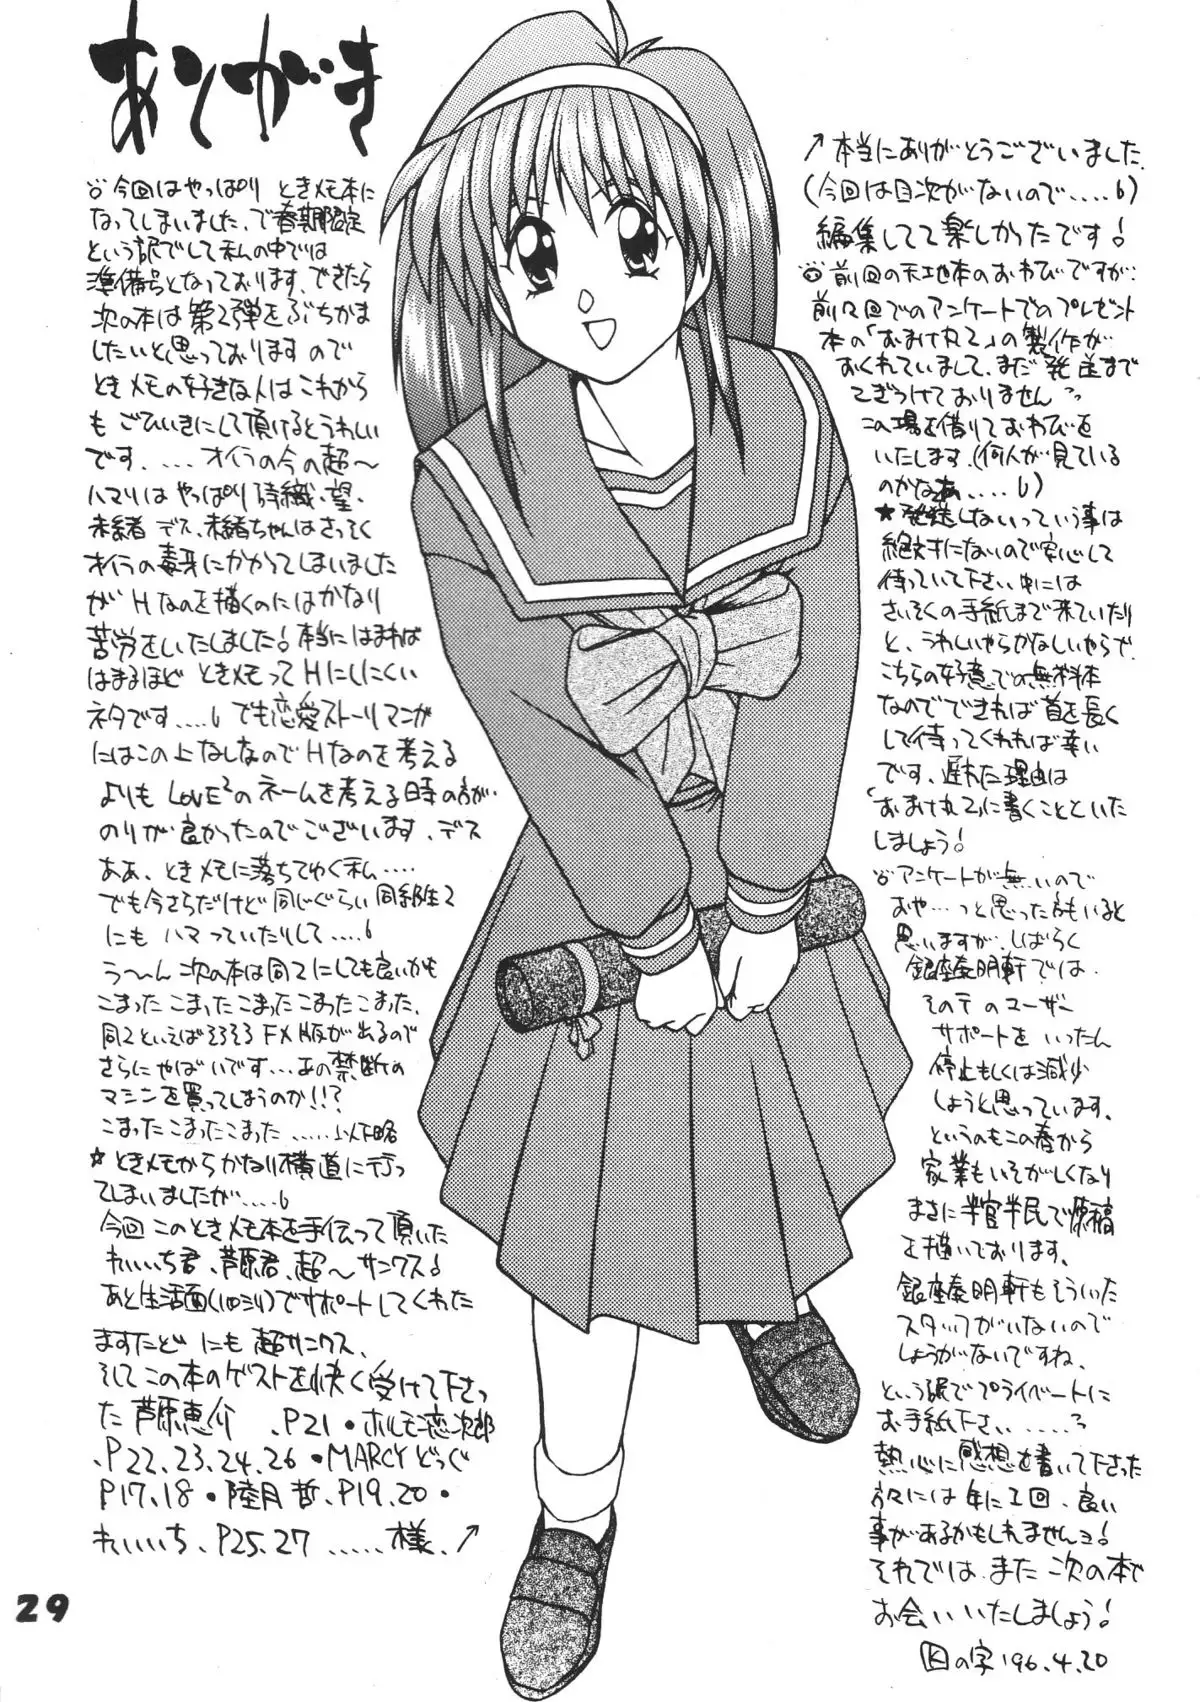 あとがき
今回はやっぱり ときメモ本に
なってしまいました、で春期限定
という訳でして私の中では
準備号となっております、できたら
次の本は第2弾をぶちかま
したいと思っておりますので
ときメモの好きな人はこれから
も ごひいきにして頂けるとうれしい
です、....オイラの今の超〜
ハマリは やっぱり 詩織・望・
未緒 デス、未緒ちゃんはさっそく
オイラの毒牙にかかってしまいました
が Hなのを描くのにはかなり
苦労をいたしました!本当に はまれば
はまるほど ときメモって Hにしにくい
ネタです....でも恋愛ストーリマンガ
にはこの上なしなので Hなのを考える
よりも LOVE²のネームを考える時の方が
のりが良かったのでございます、デス
ああ、ときメモに落ちてゆく私.....
でも今さらだけど同じぐらい同級生2
にも ハマっていたりして....
う〜ん 次の本は同2にしても良いかも
こまった こまった こまった こまった こまった、
同2といえばそろそろ FX版が出るので
さらにやばいです...あの禁断の
マシンを買ってしまうのか!!?
こまった こまったこまった ......以下略
☆ときメモからかなり横道に行っ
てしまいましたが....
今回 このときメモ本を手伝って頂いた
れいいち君、芦原君、超〜サンクス!
あと生活面でサポートしてくれた
ますたどにも 超サンクス、
そしてこの本のゲストを快く受けて下さっ
た 芦原恵介 、P21・ホルモン恋次郎
、P22.23.24.26・MARCYどっぐ
P17.18・陸月 哲、P19.20・
れいいち、P25.27 .....様、↗
↗本当にありがとうございました、
(今回は目次がないので.....)
編集してて楽しかったです!
前回の天地本のおわびですが、
前々回でのアンケートでのプレゼント
本の「おまけ丸2」の製作が
おくれていまして、まだ発送まで
こぎつけておりません
この場を借りておわびを
いたします、(何人が見ている
のかなぁ....)
★発送しないっていう事は
絶対にないので安心して
待っていて下さい、中には
さいそくの手紙まで来ていたり
と、うれしいやらかなしいやらで、
こちらの好意での無料本
なのでできれば首を長く
して待ってくれれば幸い
です、遅れた理由は
「おまけ丸2」に書くことといた
しましょう!
アンケートが無いので
おや...っと思った方もいると
思いますが、しばらく
銀座泰明軒では、
その手のユーザー
サポートを いったん
停止もしくは減少
しようと思っています、
というのもこの春から
家業もいそがしくなり
まさに半官半民で原稿
を描いております、
銀座泰明軒もそういった
スタッフがいないので
しょうがないですね、
という訳でプライベートに
お手紙下さい......
熱心に感想を書いて下さった
方々には年に1回、良い
事があるかもしれませんヨ!
それでは、また 次の本で
お会いいたしましょう!
囚の字 '96.4.20
29